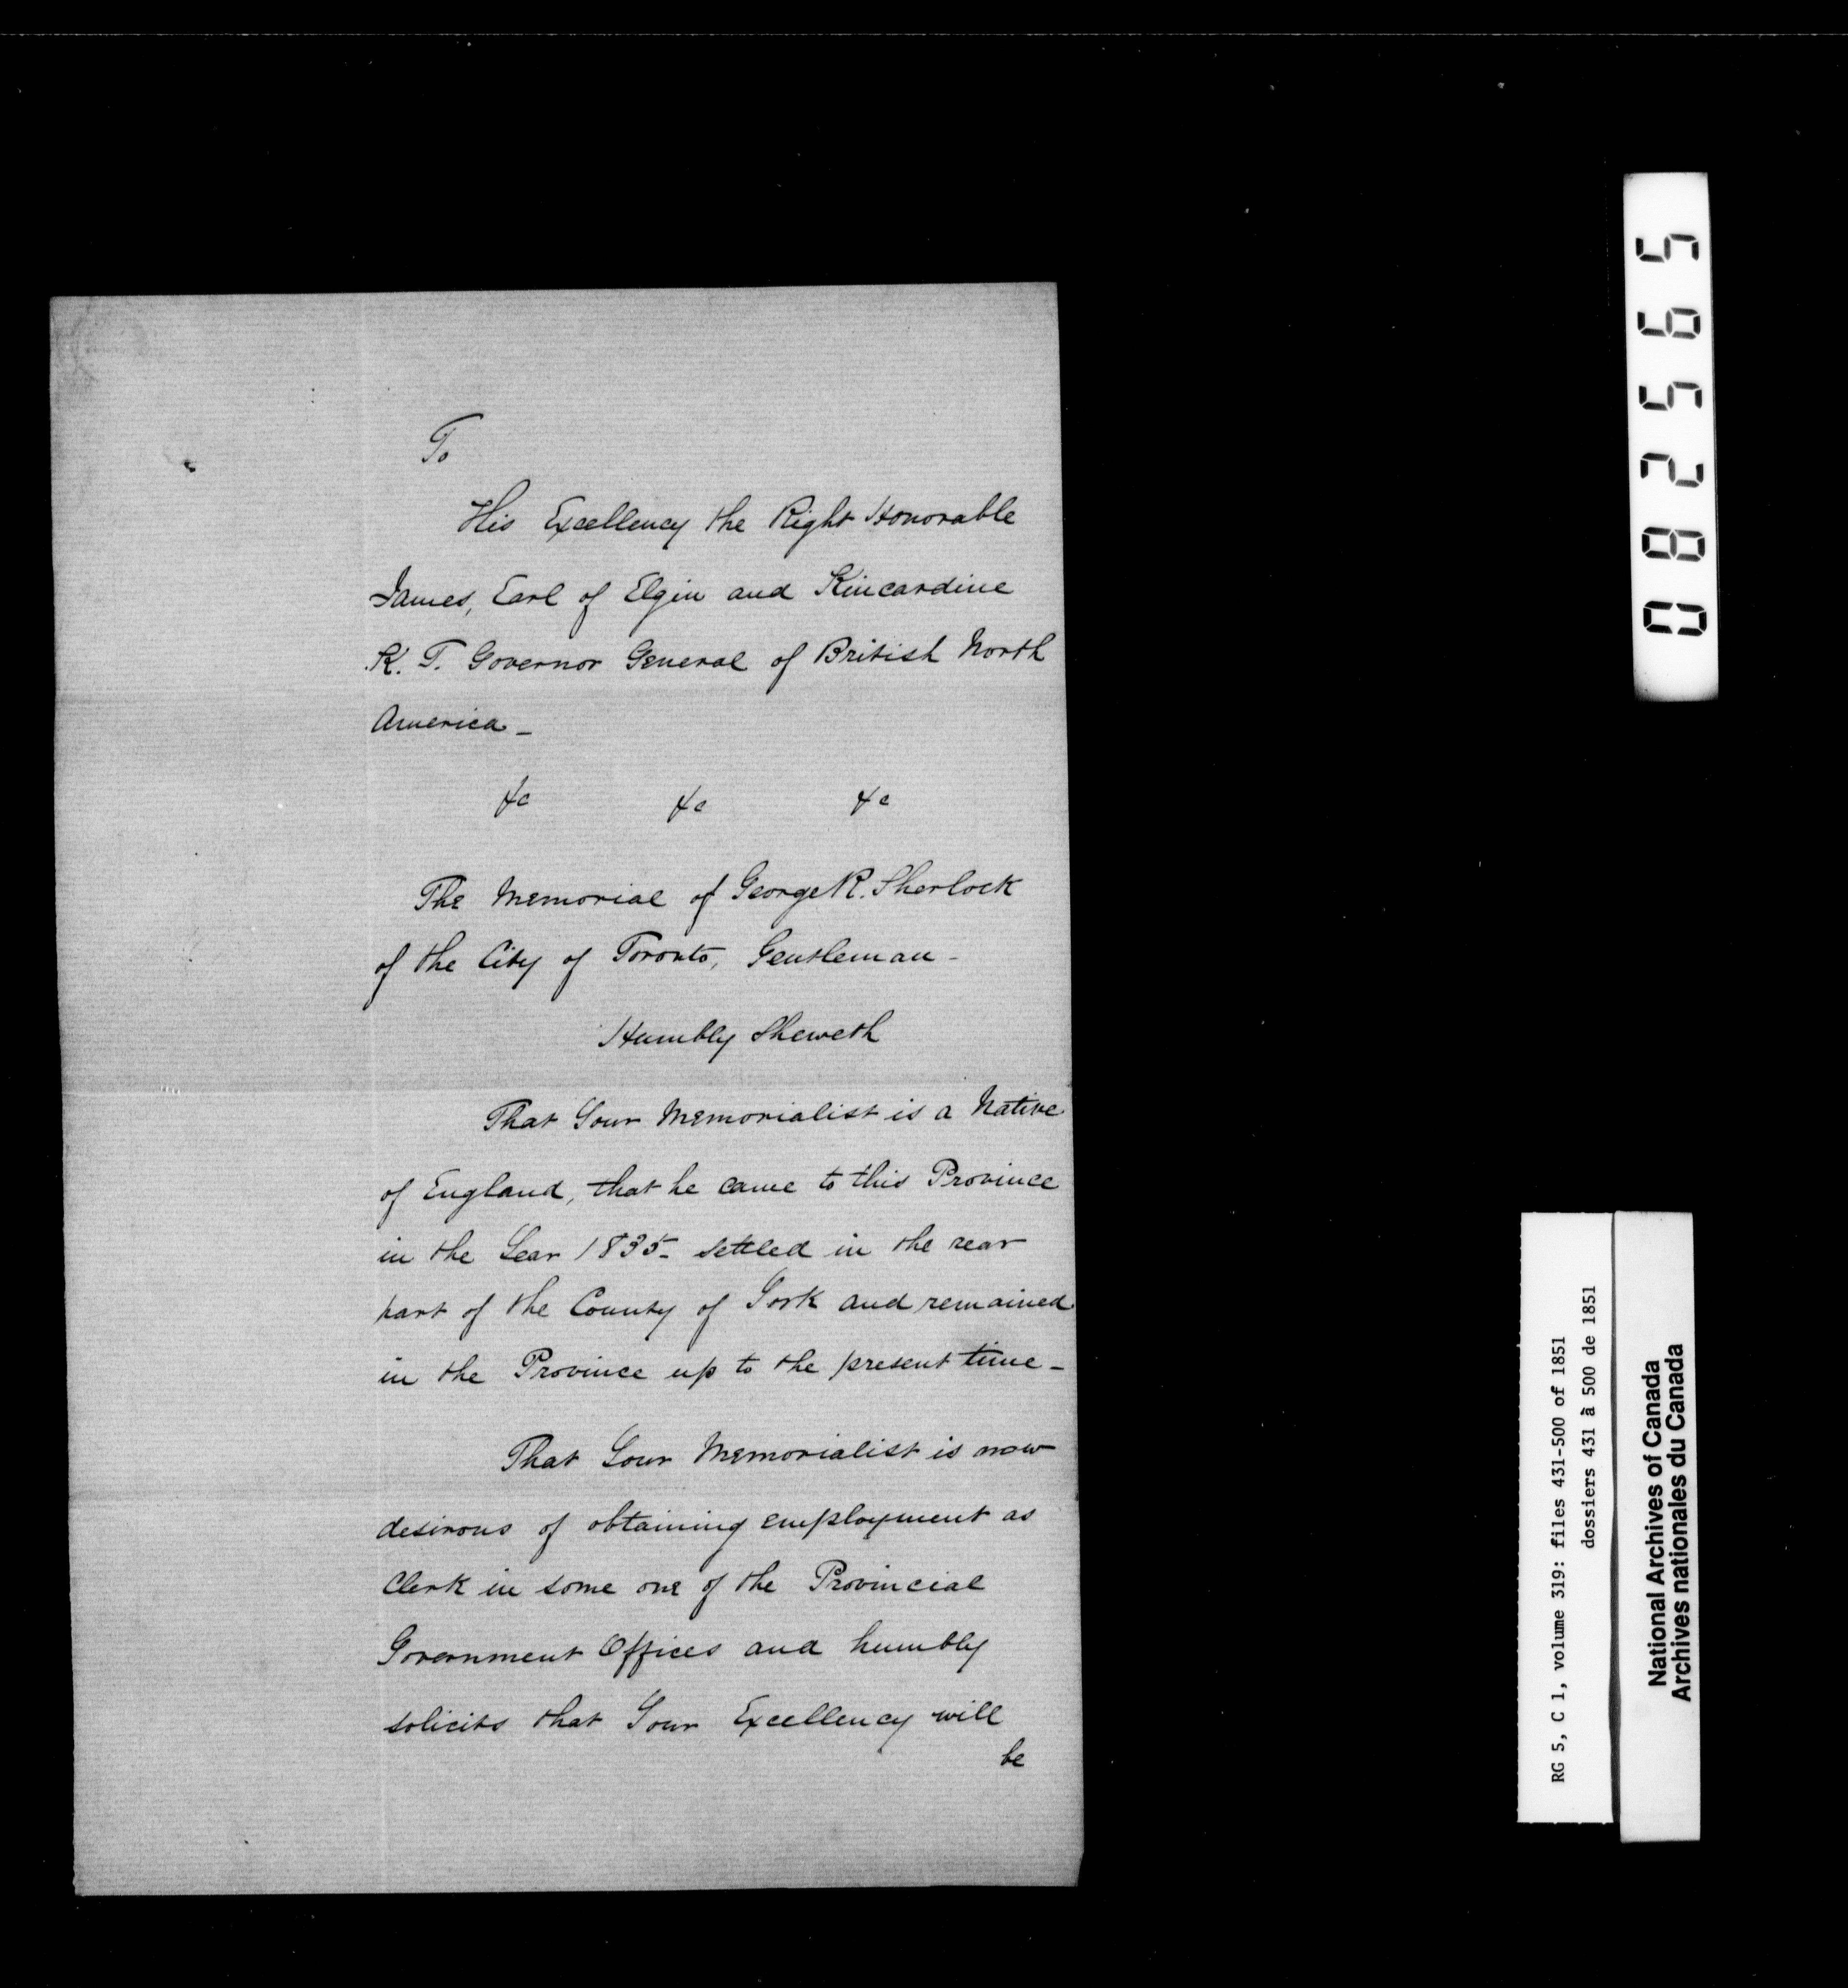 To
His Excellency the Right Honorable
James, Earl of Elgin and Kincardine
K. T. Governor General of British North
America _
&c &c &c
The Memorial of George R. Sherlock
of the City of Toronto, Gentleman -
Humbly Sheweth
That Your Memorialist is a Native
of England, that he came to this Province
in the Year 1835 - settled in the rear
part of the County of York and remained
in the Province up to the present time -
That Your Memorialist is now
desirous of obtaining employment as
Clerk in some one of the Provincial
Government Offices and humbly
solicits that Your Excellency will
be
082565
RG 5, C 1, volume 319: files 431-500 of 1851
dossiers 431 à 500 de 1851
National Archives of Canada
Archives nationales du Canada